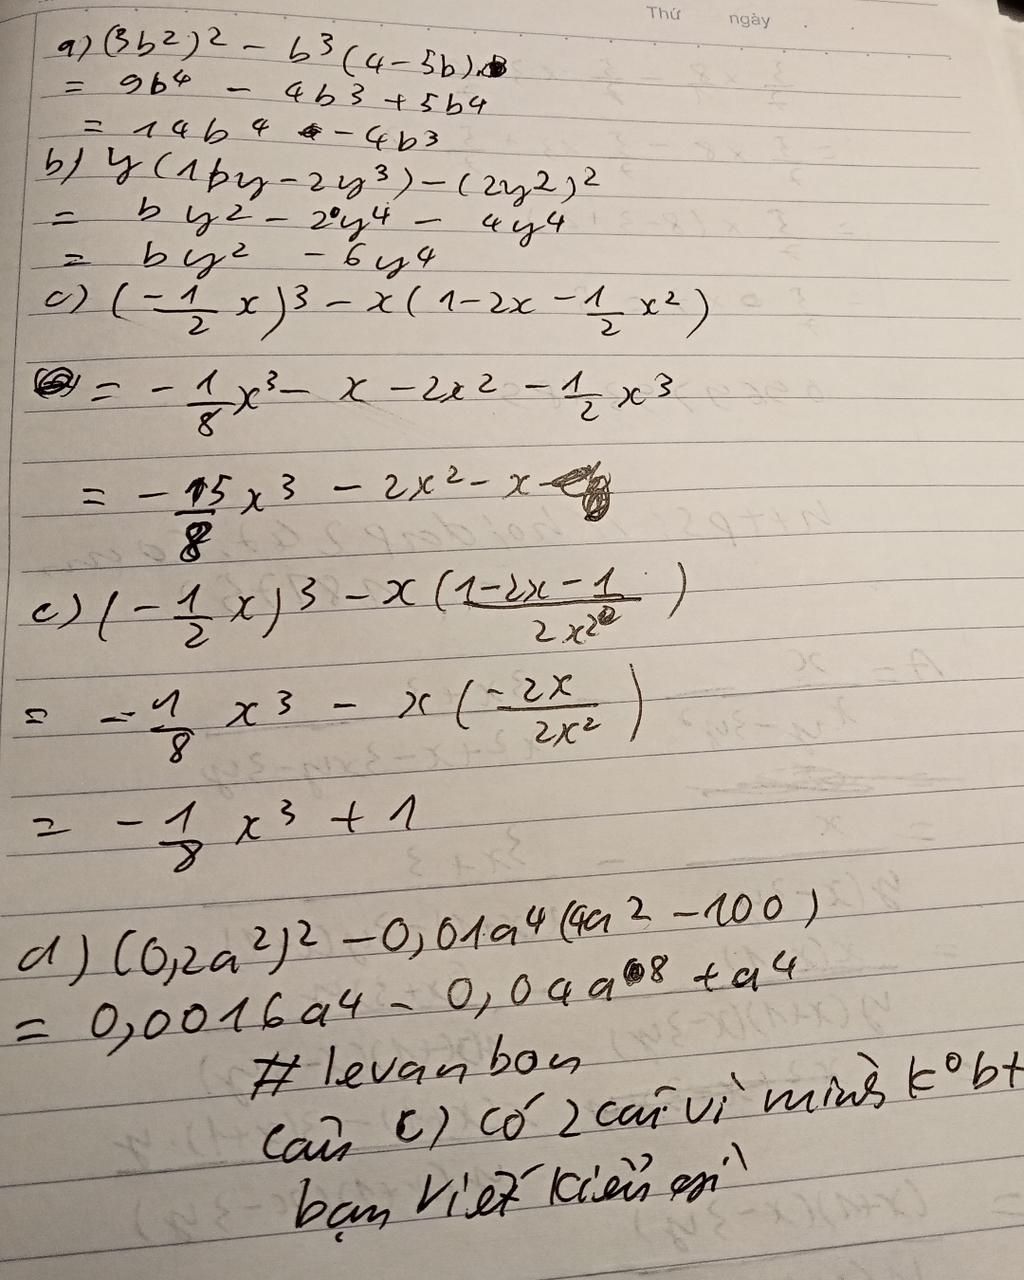 Thứ ngày
a) (3b²)² - b³(4-5b)
= 9b⁴ - 4b³ + 5b⁴
= 14b⁴ - 4b³
b) y(1by-2y³)-(2y²)²
= by² - 2y⁴ - 4y⁴
= by² - 6y⁴
c) (-1/2 x)³ - x(1-2x-1/2 x²)
= -1/8 x³ - x - 2x² - 1/2 x³
= -5/8 x³ - 2x² - x
c) (-1/2 x)³ - x((1-2x-1)/2x²)
= -1/8 x³ - x(-2x/2x²)
= -1/8 x³ + 1
d) (0,2a²)² - 0,01a⁴(4a² - 100)
= 0,0016a⁴ - 0,04a⁸ + a⁴
# levanbon
câu c) có 2 cái vì mình k° bt
bạn viết kiểu gì